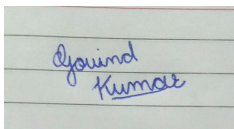 Govind
Kumar